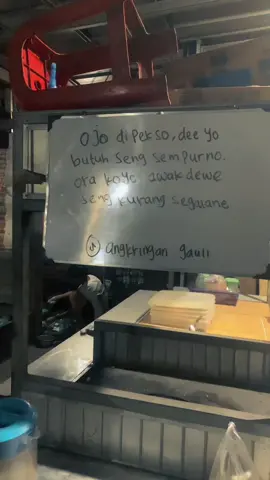 Ojo dipekso, dee yo
butuh seng sempurno.
ora koyo awak dewe
seng kurang segalane
angkringan gauli